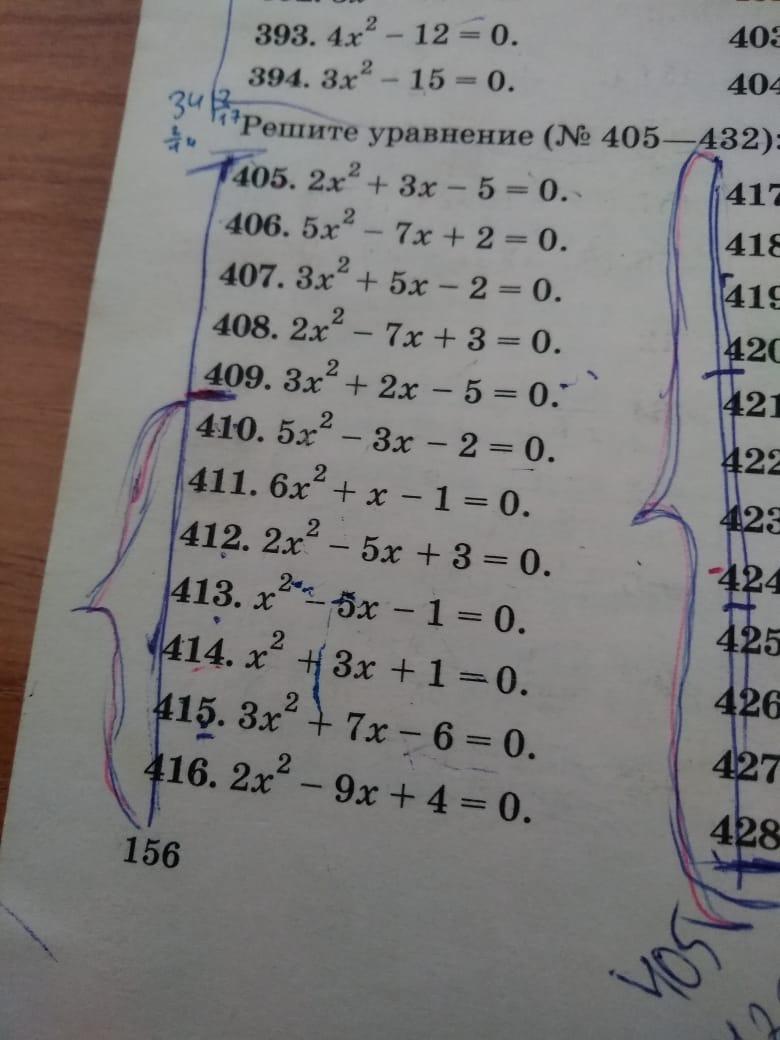 393. 4x² − 12 = 0.
394. 3x² − 15 = 0.
Решите уравнение (№ 405—432):
405. 2x² + 3x − 5 = 0.
406. 5x² − 7x + 2 = 0.
407. 3x² + 5x − 2 = 0.
408. 2x² − 7x + 3 = 0.
409. 3x² + 2x − 5 = 0.
410. 5x² − 3x − 2 = 0.
411. 6x² + x − 1 = 0.
412. 2x² − 5x + 3 = 0.
413. x² − 5x − 1 = 0.
414. x² + 3x + 1 = 0.
415. 3x² + 7x − 6 = 0.
416. 2x² − 9x + 4 = 0.
156
403
404
417
418
419
420
421
422
423
424
425
426
427
428
34
17
405